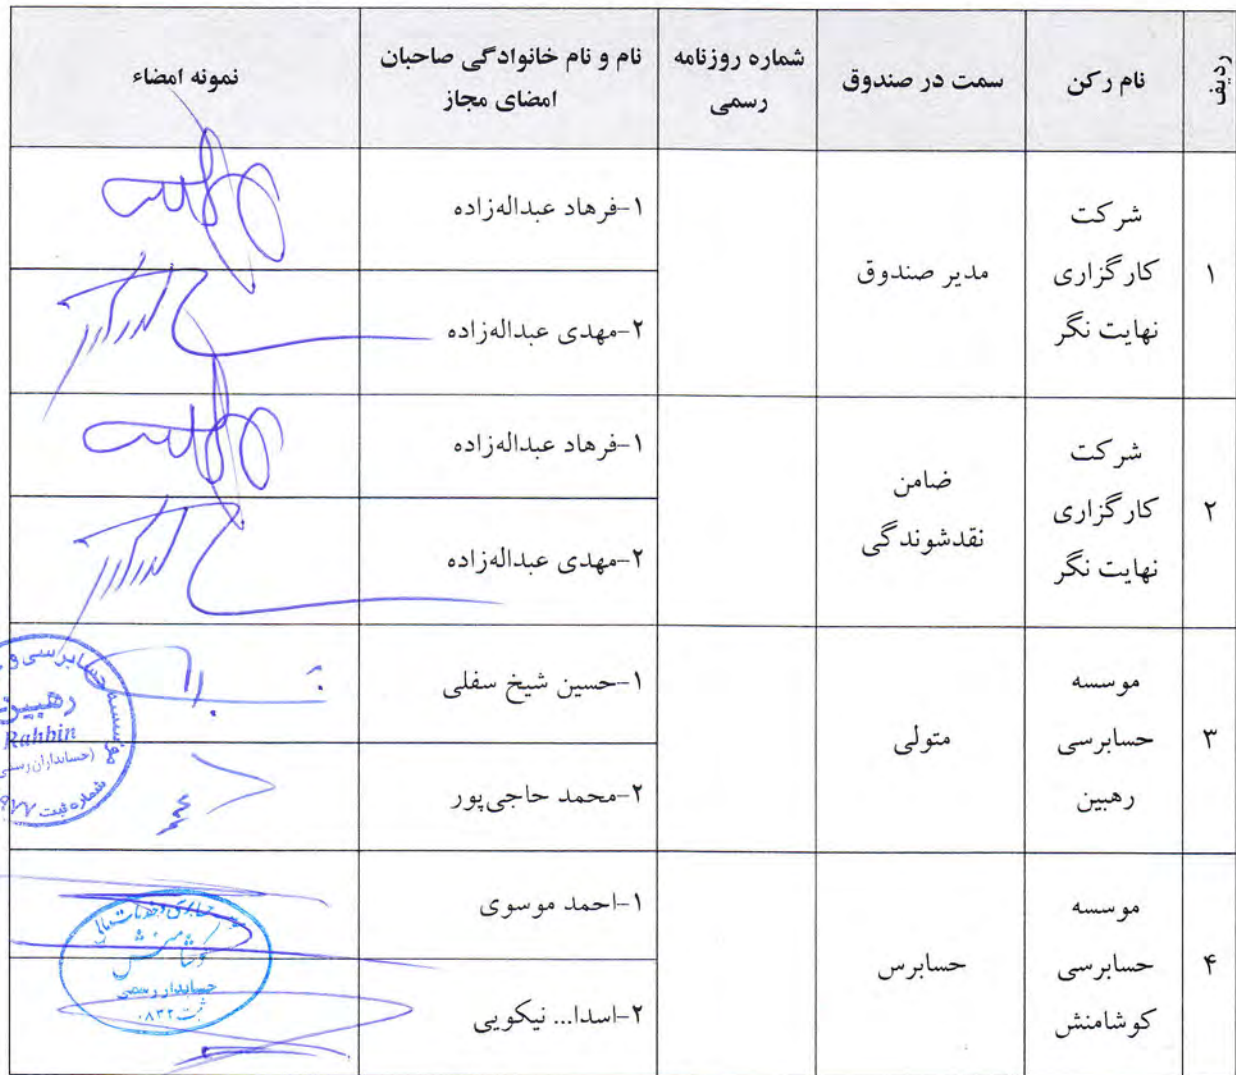 ردیف
نام رکن
سمت در صندوق
شماره روزنامه
رسمی
نام و نام خانوادگی صاحبان
امضای مجاز
نمونه امضاء
۱
شرکت
کارگزاری
نهایت نگر
مدیر صندوق
۱-فرهاد عبداله‌زاده
۲-مهدی عبداله‌زاده
۲
شرکت
کارگزاری
نهایت نگر
ضامن
نقدشوندگی
۱-فرهاد عبداله‌زاده
۲-مهدی عبداله‌زاده
۳
موسسه
حسابرسی
رهبین
متولی
۱-حسین شیخ سفلی
۲-محمد حاجی‌پور
موسسه حسابرسی و
رهبین
Rahbin
(حسابداران رسمی
شماره ثبت
۴
موسسه
حسابرسی
کوشامنش
حسابرس
۱-احمد موسوی
۲-اسدا... نیکویی
حسابرسی و خدمات مالی
کوشامنش
حسابدار رسمی
ثبت ۰۸۳۲